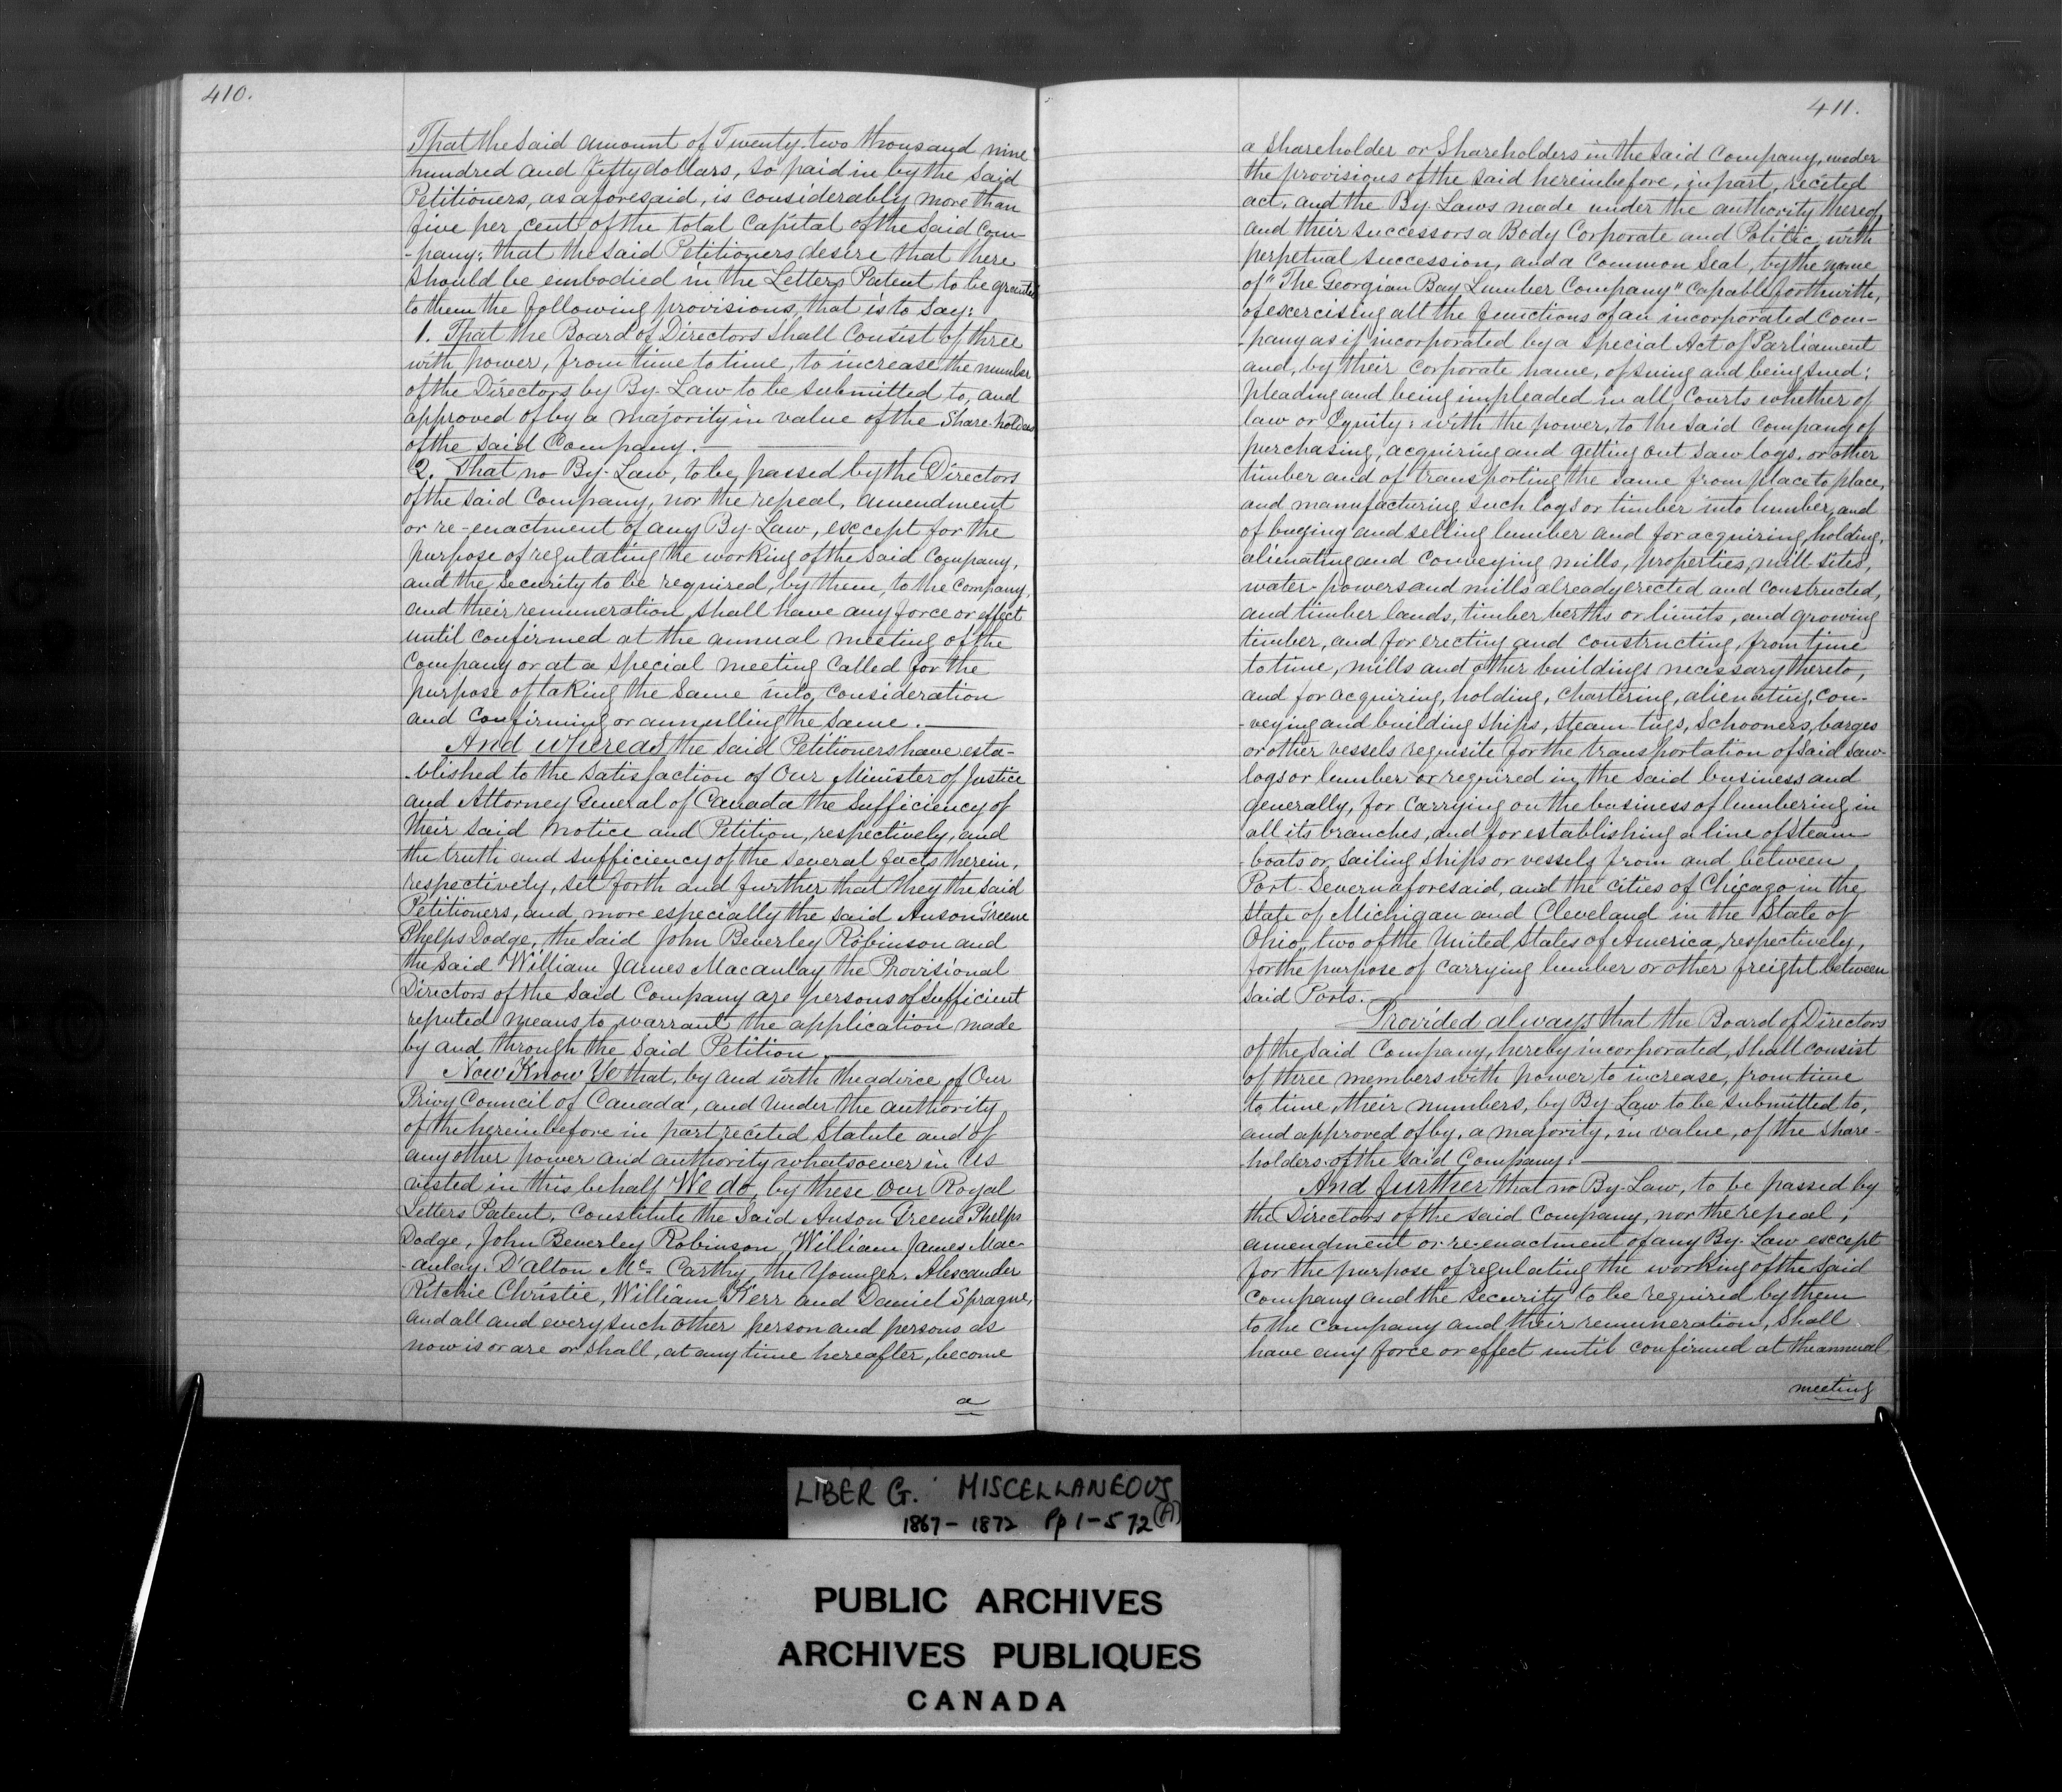 410.
That the said amount of Twenty-two thousand nine
hundred and fifty dollars, so paid in by the said
Petitioners, as aforesaid, is considerably more than
five per cent of the total Capital of the said Com-
-pany: that the said Petitioners desire that there
should be embodied in the Letters Patent to be granted
to them the following provisions, that is to say:
1. That the Board of Directors shall consist of three
with power, from time to time, to increase the number
of the Directors by By-Law to be submitted to, and
approved of by a majority in value of the Share-holders
of the said Company.
2. That no By-Law, to be passed by the Directors
of the said Company, nor the repeal, amendment
or re-enactment of any By-Law, except for the
purpose of regulating the working of the said Company,
and the security to be required, by them, to the Company,
and their remuneration, shall have any force or effect
until confirmed at the annual meeting of the
Company or at a special meeting called for the
purpose of taking the same into consideration
and confirming or annulling the same.
And whereas the said Petitioners have esta-
-blished to the satisfaction of Our Minister of Justice
and Attorney General of Canada the sufficiency of
their said notice and Petition, respectively, and
the truth and sufficiency of the several facts therein,
respectively, set forth and further that they the said
Petitioners, and, more especially the said Anson Greene
Phelps Dodge, the said John Beverley Robinson and
the said William James Macaulay the Provisional
Directors of the said Company are persons of sufficient
reputed means to warrant the application made
by and through the said Petition.
Now Know Ye that, by and with the advice of Our
Privy Council of Canada, and under the authority
of the hereinbefore in part recited Statute and of
any other power and authority whatsoever in Us
vested in this behalf We do, by these Our Royal
Letters Patent, Constitute the said Anson Greene Phelps
Dodge, John Beverley Robinson, William James Mac-
-aulay, D'alton Mc. Carthy, the Younger, Alexander
Ritchie Christie, William Kerr and Daniel Sprague,
and all and every such other person and persons as
now is or are or shall, at any time hereafter, become
a
411.
a Shareholder or Shareholders in the said Company, under
the provisions of the said hereinbefore, in part, recited
act, and the By-Laws made under the authority thereof,
and their successors a Body Corporate and Politic, with
perpetual succession, and a Common Seal, by the name
of "The Georgian Bay Lumber Company" capable forthwith,
of exercising all the functions of an incorporated Com-
-pany as if incorporated by a Special Act of Parliament
and, by their corporate name, of suing and being sued:
pleading and being impleaded in all Courts whether of
law or Equity: with the power, to the said Company of
purchasing, acquiring and getting out saw logs, or other
timber and of transporting the same from place to place,
and manufacturing such logs or timber into lumber, and
of buying and selling lumber and for acquiring, holding,
alienating and conveying mills, properties, mill-sites,
water-powers and mills already erected and constructed,
and timber lands, timber berths or limits, and growing
timber, and for erecting and constructing, from time
to time, mills and other buildings necessary thereto,
and for acquiring, holding, chartering, alienating, con-
-veying and building ships, steam-tugs, schooners, barges
or other vessels requisite for the transportation of said saw-
logs or lumber or required in the said business and
generally, for carrying on the business of lumbering in
all its branches, and for establishing a line of steam
-boats or sailing ships or vessels from and between
Port-Severn aforesaid, and the cities of Chicago in the
State of Michigan and Cleveland in the State of
Ohio, two of the United States of America, respectively,
for the purpose of carrying lumber or other freight between
said Ports.
Provided always that the Board of Directors
of the said Company, hereby incorporated, shall consist
of three members with power to increase, from time
to time, their numbers, by By-Law to be submitted to,
and approved of by, a majority, in value, of the share-
-holders of the said Company:
And further that no By-Law, to be passed by
the Directors of the said Company, nor the repeal,
amendment or re-enactment of any By-Law except
for the purpose of regulating the working of the said
Company and the security to be required by them
to the Company and their remuneration, shall
have any force or effect until confirmed at the annual
meeting
LIBER G. MISCELLANEOUS
1867-1872 Pp 1-572 (A)
PUBLIC ARCHIVES
ARCHIVES PUBLIQUES
CANADA